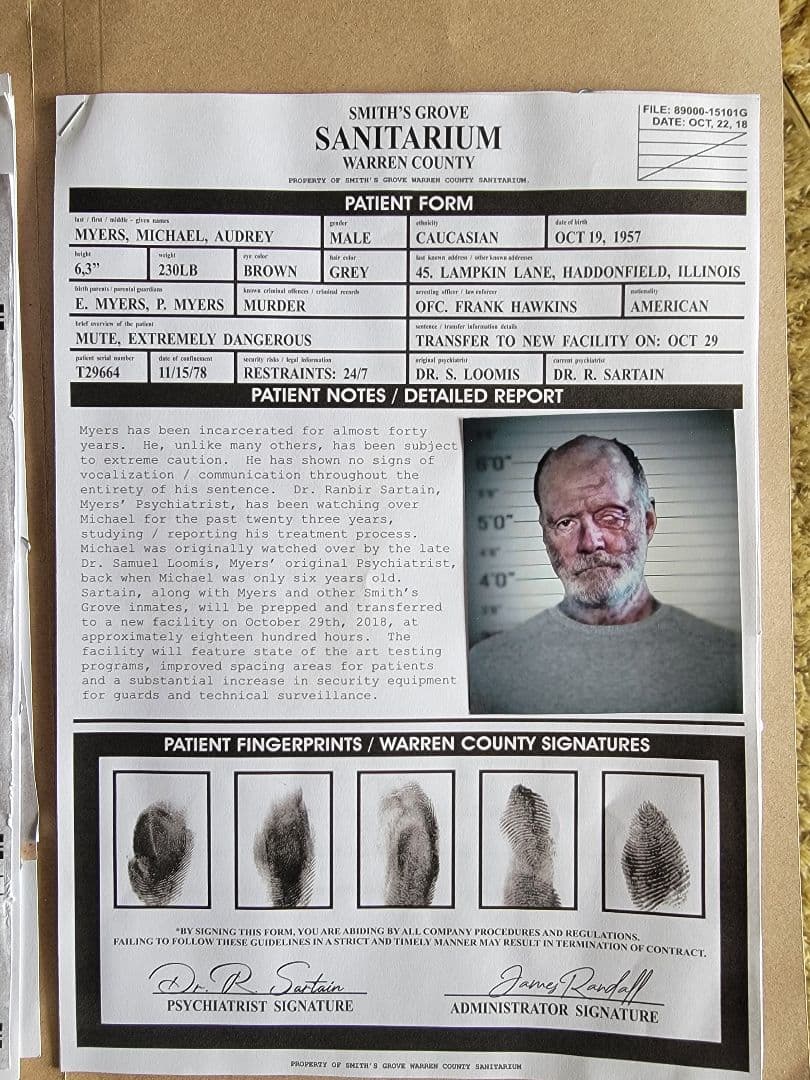 SMITH'S GROVE
SANITARIUM
WARREN COUNTY
PROPERTY OF SMITH'S GROVE WARREN COUNTY SANITARIUM.
FILE: 89000-15101G
DATE: OCT, 22, 18
PATIENT FORM
last / first / middle - given names
MYERS, MICHAEL, AUDREY
gender
MALE
ethnicity
CAUCASIAN
date of birth
OCT 19, 1957
height
6,3”
weight
230LB
eye color
BROWN
hair color
GREY
last known address / other known addresses
45. LAMPKIN LANE, HADDONFIELD, ILLINOIS
birth parents / parental guardians
E. MYERS, P. MYERS
known criminal offences / criminal records
MURDER
arresting officer / law enforcer
OFC. FRANK HAWKINS
nationality
AMERICAN
brief overview of the patient
MUTE, EXTREMELY DANGEROUS
sentence / transfer information details
TRANSFER TO NEW FACILITY ON: OCT 29
patient serial number
T29664
date of confinement
11/15/78
security risks / legal information
RESTRAINTS: 24/7
original psychiatrist
DR. S. LOOMIS
current psychiatrist
DR. R. SARTAIN
PATIENT NOTES / DETAILED REPORT
Myers has been incarcerated for almost forty
years. He, unlike many others, has been subject
to extreme caution. He has shown no signs of
vocalization / communication throughout the
entirety of his sentence. Dr. Ranbir Sartain,
Myers’ Psychiatrist, has been watching over
Michael for the past twenty three years,
studying / reporting his treatment process.
Michael was originally watched over by the late
Dr. Samuel Loomis, Myers’ original Psychiatrist,
back when Michael was only six years old.
Sartain, along with Myers and other Smith’s
Grove inmates, will be prepped and transferred
to a new facility on October 29th, 2018, at
approximately eighteen hundred hours. The
facility will feature state of the art testing
programs, improved spacing areas for patients
and a substantial increase in security equipment
for guards and technical surveillance.
6'0"
5'0"
4'0"
PATIENT FINGERPRINTS / WARREN COUNTY SIGNATURES
*BY SIGNING THIS FORM, YOU ARE ABIDING BY ALL COMPANY PROCEDURES AND REGULATIONS.
FAILING TO FOLLOW THESE GUIDELINES IN A STRICT AND TIMELY MANNER MAY RESULT IN TERMINATION OF CONTRACT.
Dr. R. Sartain
PSYCHIATRIST SIGNATURE
James Randall
ADMINISTRATOR SIGNATURE
PROPERTY OF SMITH'S GROVE WARREN COUNTY SANITARIUM